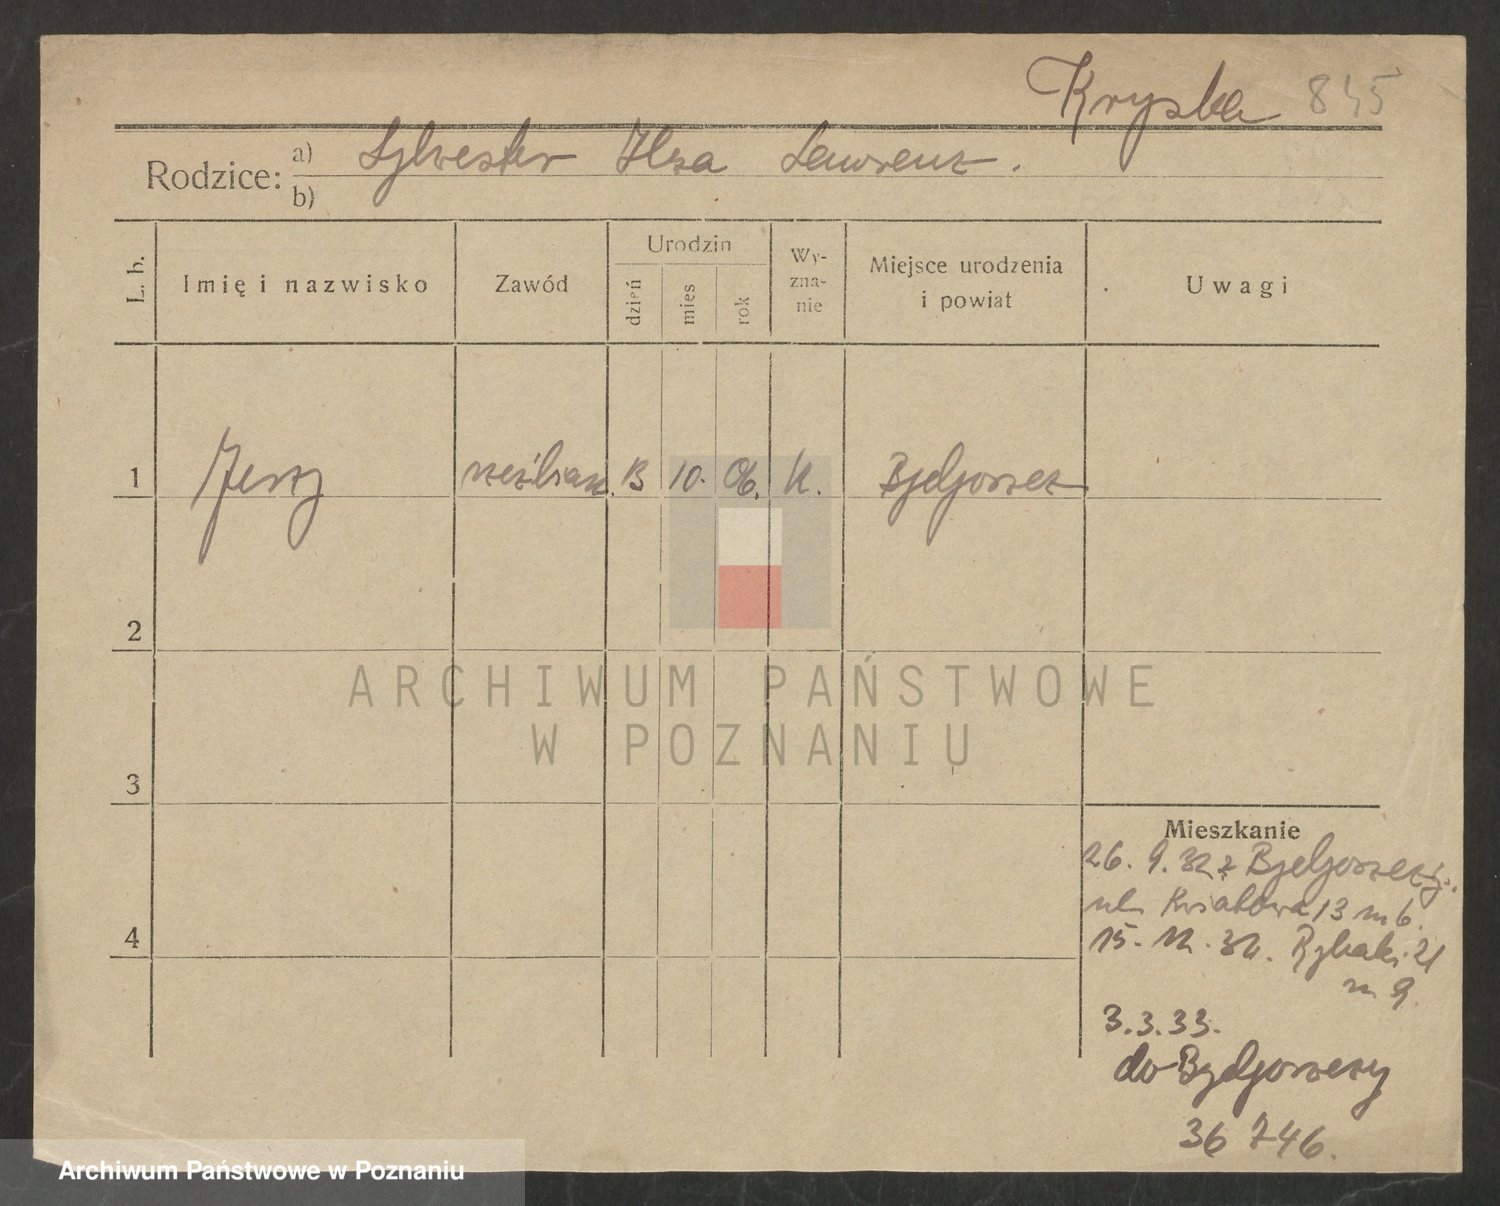 Kryska 845
Rodzice: a) Sylvester Ilsa Lawrenz.
b)
L. b.
Imię i nazwisko
Zawód
Urodzin
dzień
mies
rok
Wy-
zna-
nie
Miejsce urodzenia
i powiat
Uwagi
1 Jerzy rzeźbiarz. 13 10. 06. K. Bydgoszcz
2
ARCHIWUM PAŃSTWOWE
W POZNANIU
3
Mieszkanie
26. 9. 32 z Bydgoszczy.
ul. Kwiatowa 13 m 6.
4
15. 12. 32. Rybaki 21
m 9.
3.3.33.
do Bydgoszczy
36 746.
Archiwum Państwowe w Poznaniu